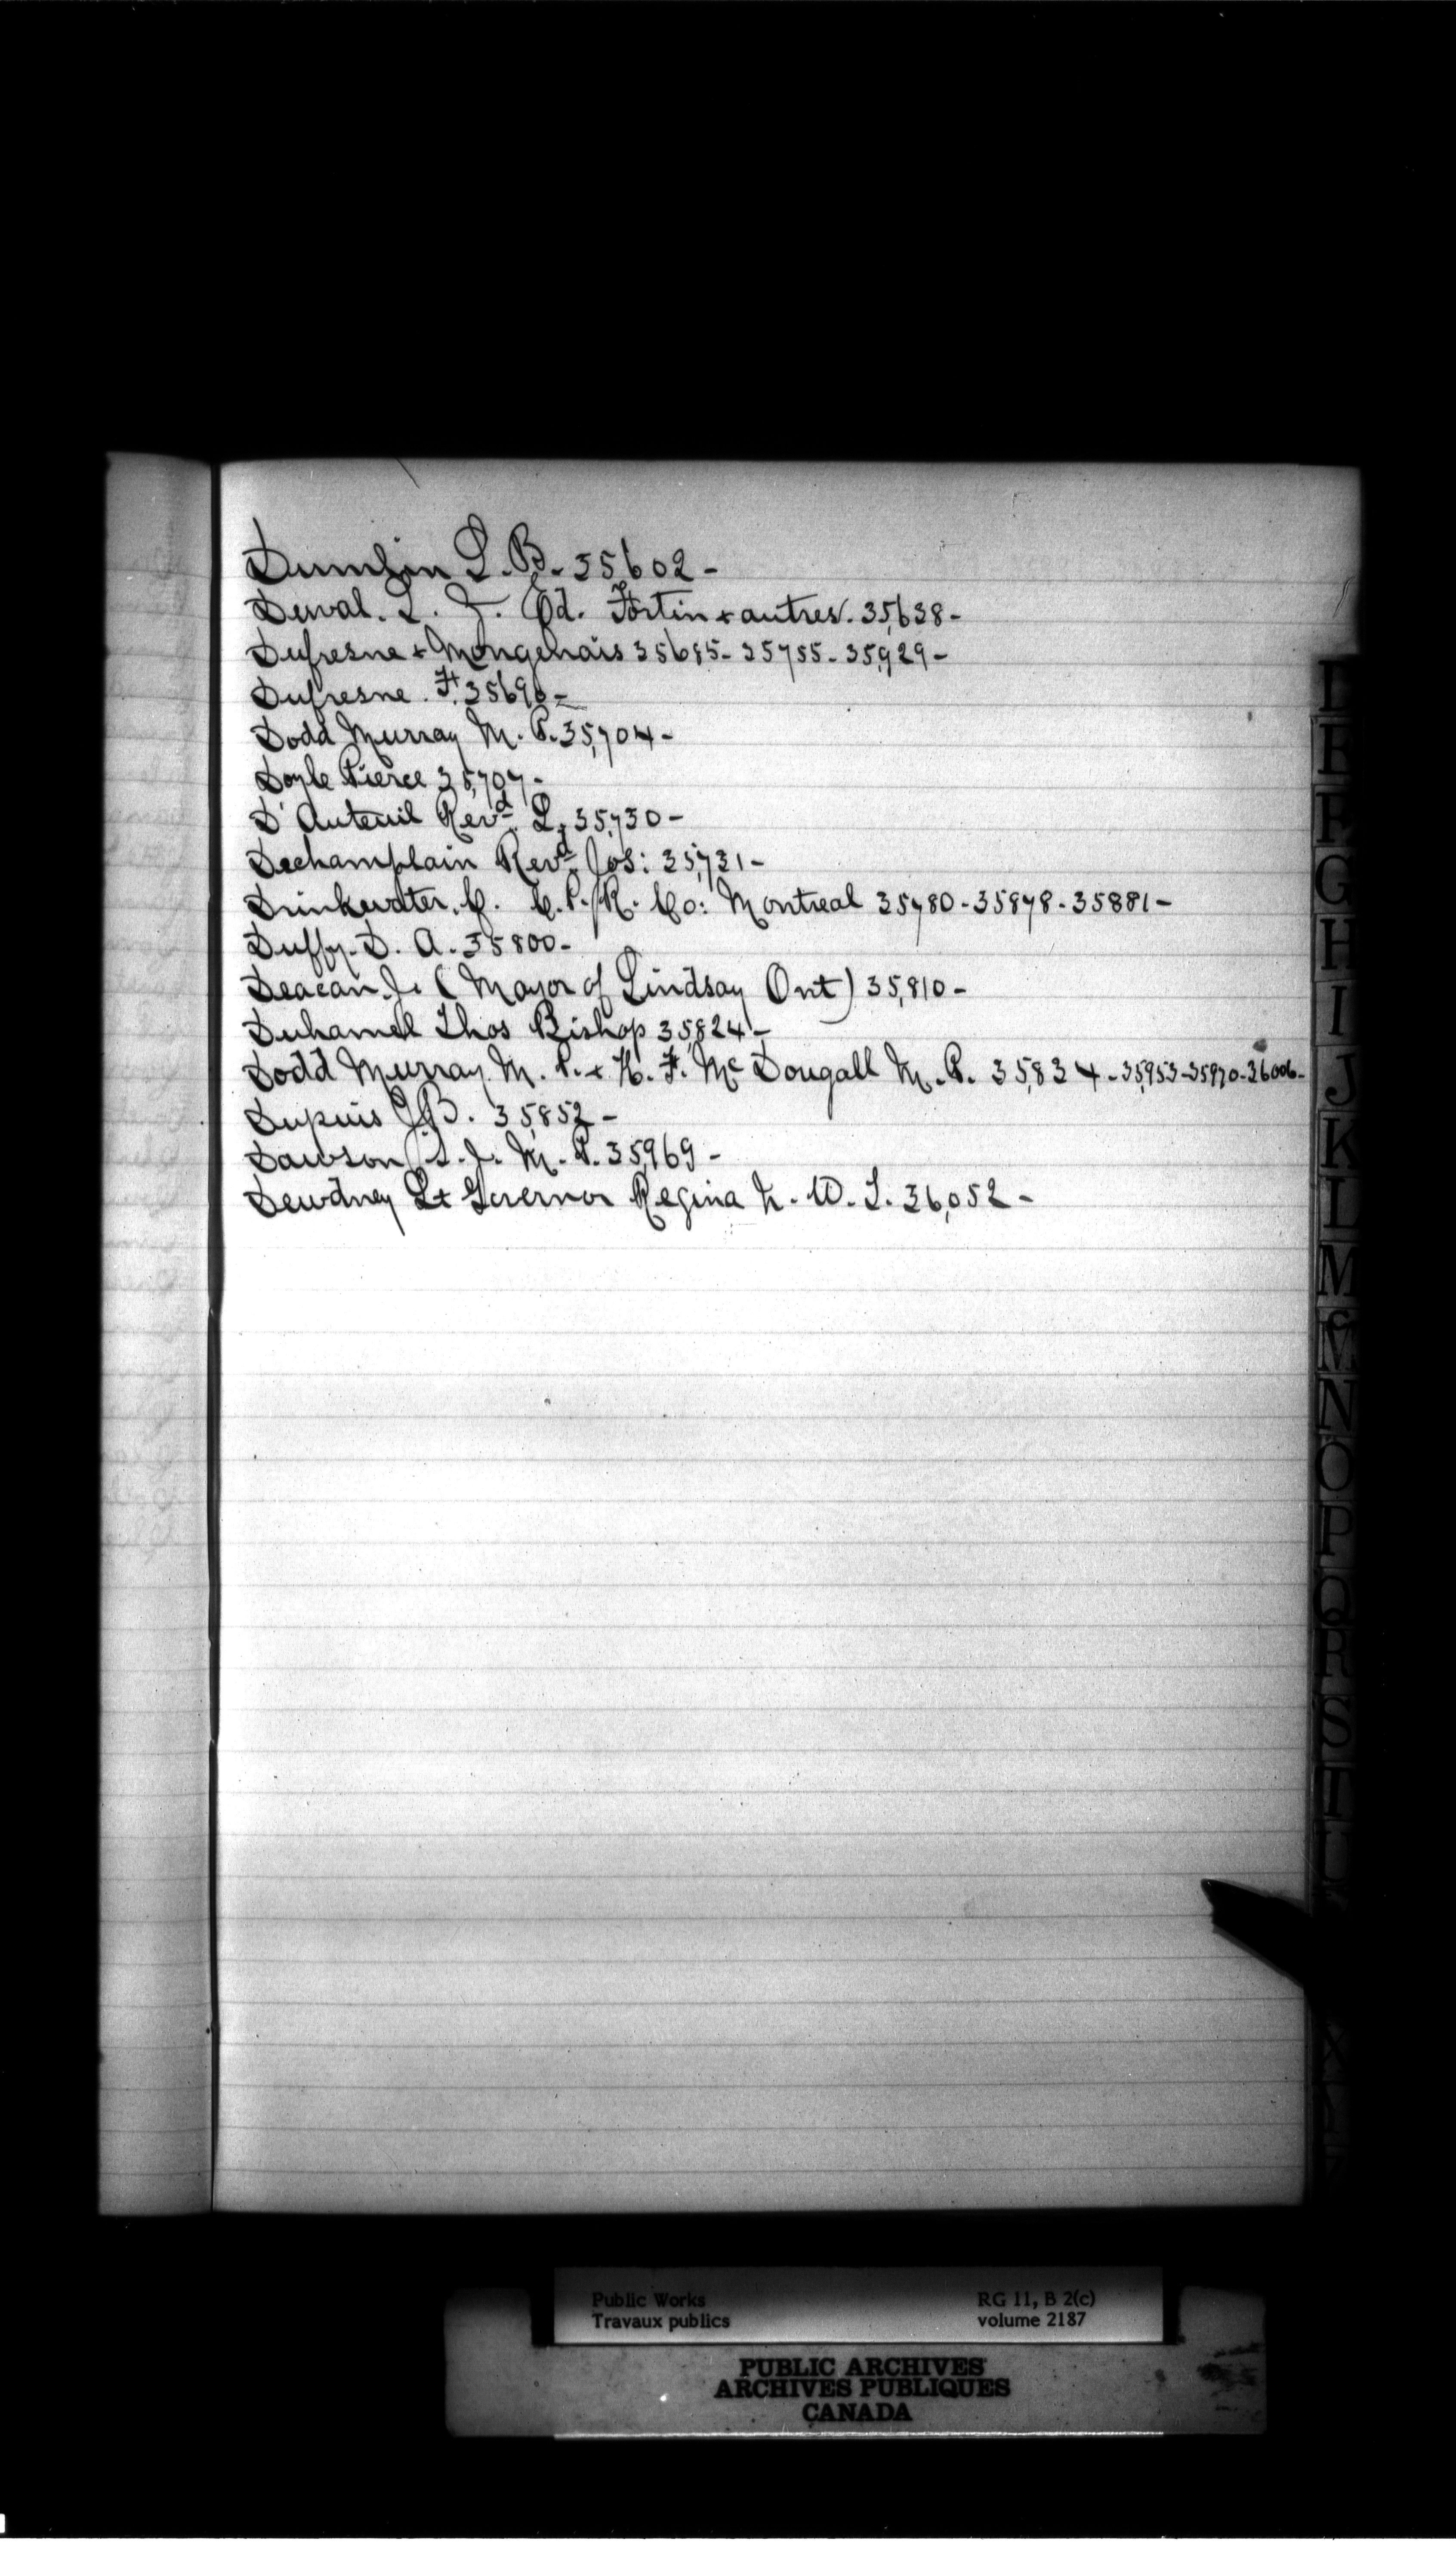 Dumlin L. B. 35602 -
Derval. L. J. Ed. Fortin & autres. 35,638 -
Dufresne & Mongenais 35685 - 35755 - 35,929 -
Dufresne. F. 35690 -
Dodd Murray M. P. 35,704 -
Doyle Pierce 35,707 -
D'Auteuil Revd. L. 35,730 -
Dechamplain Revd. Jos: 35,731 -
Drinkwater. C. C. P. R. Co: Montreal 35780 - 35878 - 35881 -
Duffy. D. A. 35800 -
Deacan. J. ( Mayor of Lindsay Ont ) 35,810 -
Duhamel Thos Bishop 35,824 -
Dodd Murray M. P. & H. F. Mc Dougall M. P. 35,834 - 35,953 - 35970 - 36006 -
Dupuis J. B. 35,852 -
Dawson S. J. M. P. 35,969 -
Dewdney Lt Governor Regina N. W. T. 36,052 -
E
F
G
H
I
J
K
L
M
Mc
N
O
P
Q
R
S
T
U
Public Works RG 11, B 2(c)
Travaux publics volume 2187
PUBLIC ARCHIVES
ARCHIVES PUBLIQUES
CANADA